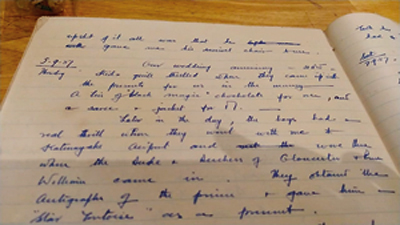 upshot of it all was that he
gave me his swivel chair
3-9-57 Our wedding
Thusly. kids quite thrilled when they came up with
the presents for us in the morning
A tin of "black magic" chocolates for me, and
a saree & jacket for
Later in the day, the boys had a
real thrill when they went with me to
Katunayake Airport and were there
when the Duke & Duchess of Gloucester & Prince
William came in. They obtained the
Autographs of the prince & gave him a
"Star Tortoise" as a present.